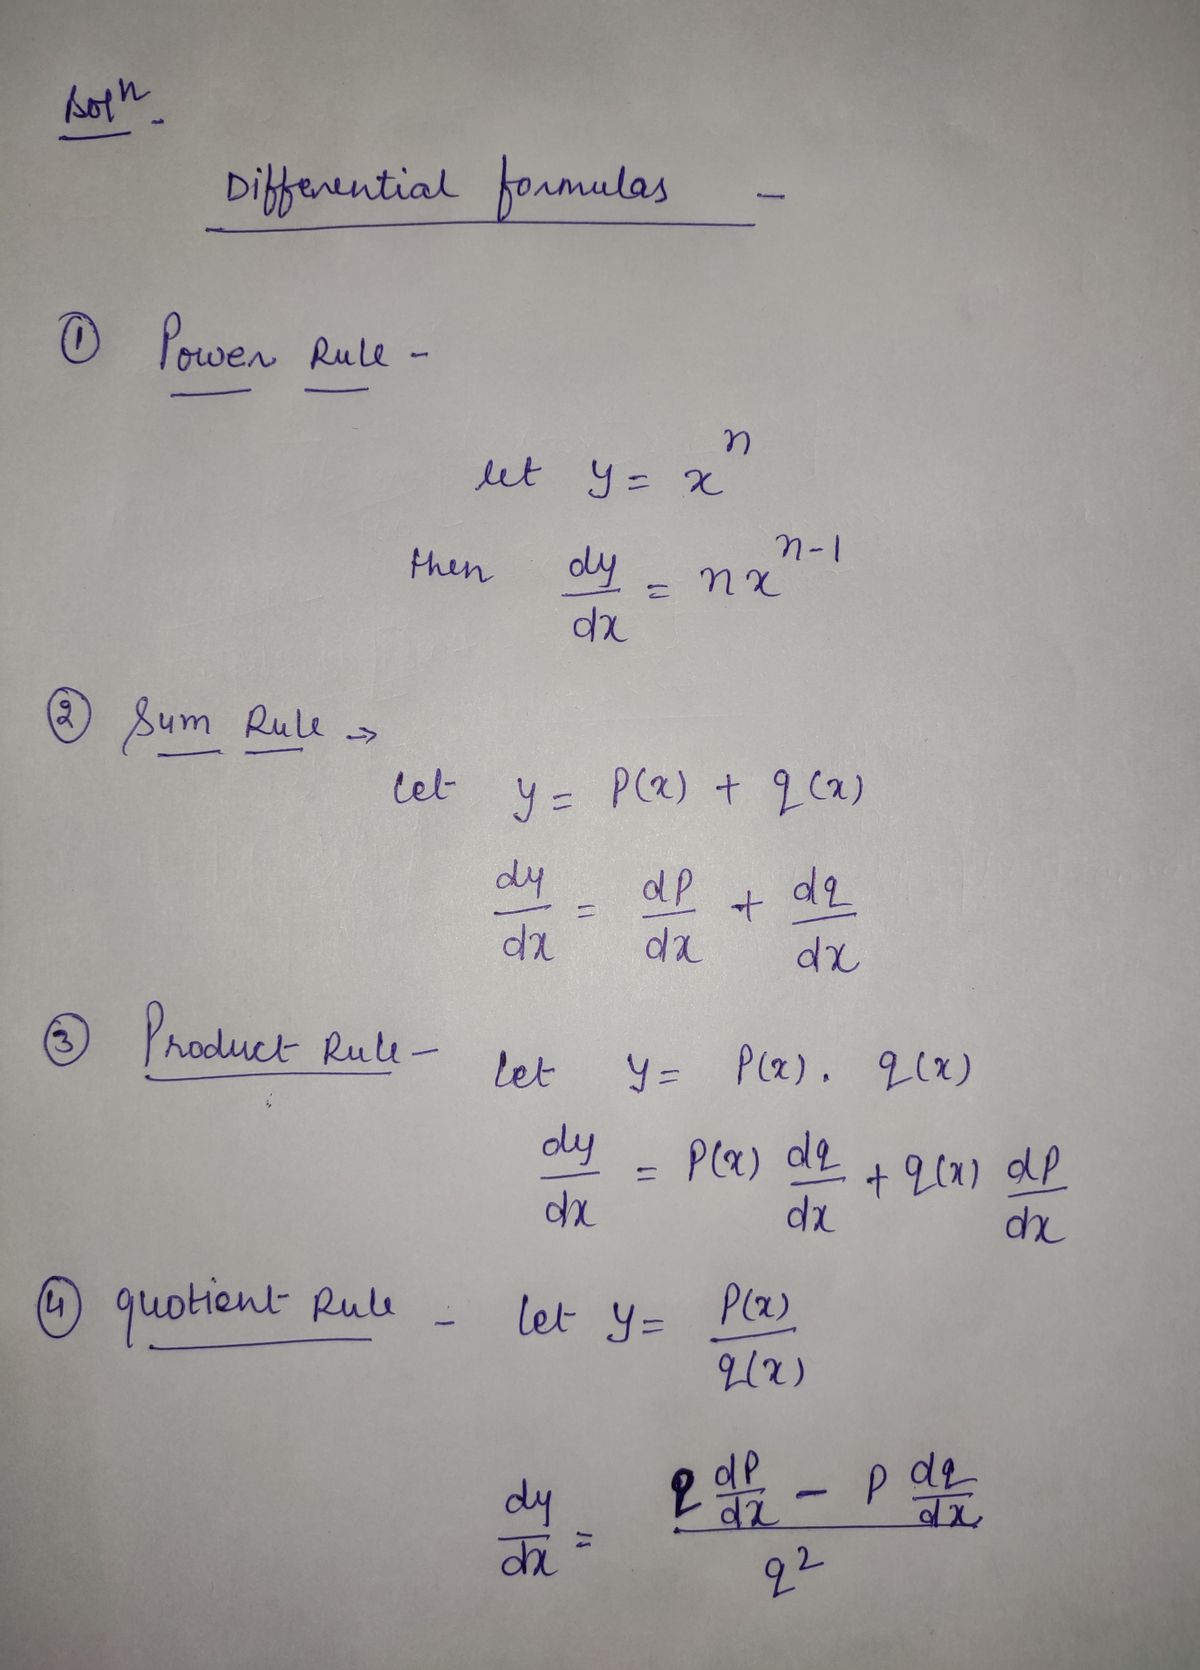 Solⁿ -
Differential formulas -
① Power Rule -
let y = xⁿ
then dy/dx = nxⁿ⁻¹
② Sum Rule →
let y = P(x) + q(x)
dy/dx = dP/dx + dq/dx
③ Product Rule - let y = P(x) . q(x)
dy/dx = P(x) dq/dx + q(x) dP/dx
④ quotient Rule - let y = P(x)/q(x)
dy/dx = (q dP/dx - P dq/dx)/q²